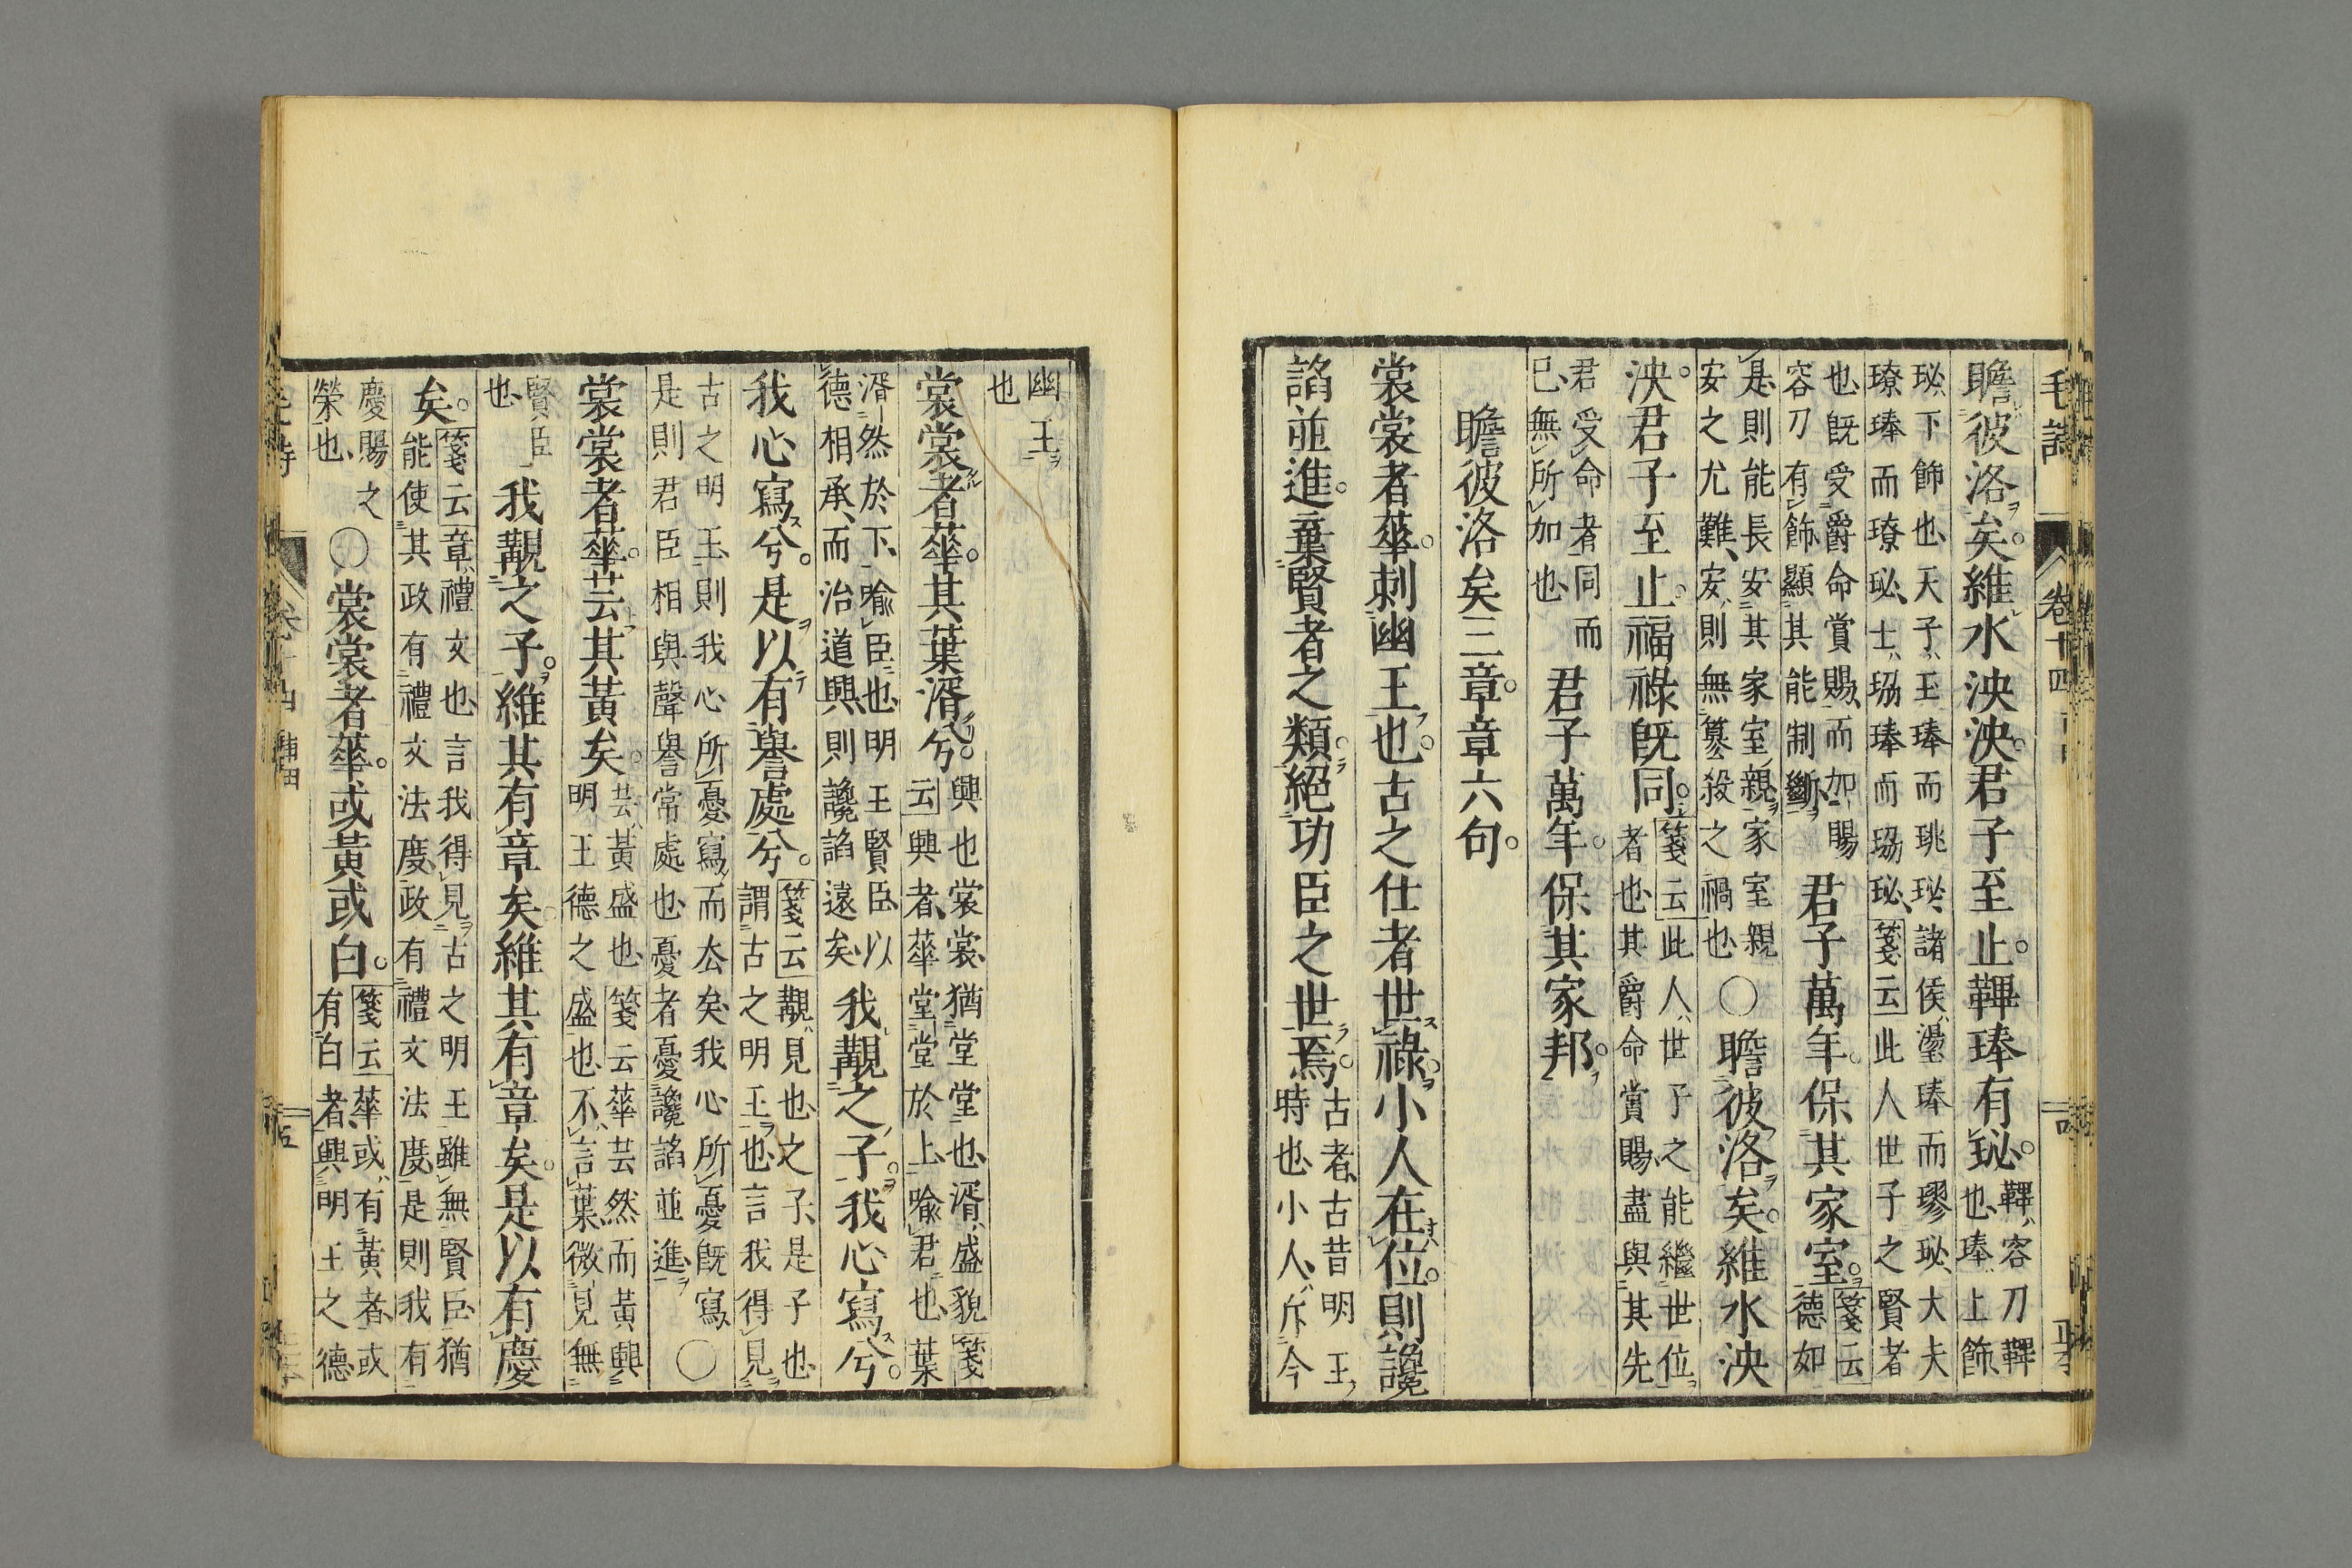 毛詩
卷十四
瞻彼洛矣。維水泱泱。君子至止。鞸琫有珌。鞸容刀鞸
也琫上飾
珌下飾也天子玉琫而珧珌諸侯璗琫而璆珌大夫
璙琫而璙珌士珕琫而珕珌箋云此人世子之賢者
也既受爵命賞賜而加賜
容刀有飾顯其能制斷君子萬年。保其家室。箋云
德如
是則能長安其家室親家室親
安之尤難安則無篡殺之禍也○瞻彼洛矣。維水泱
泱。君子至止。福祿既同。箋云此人世子之能繼世位
者也其爵命賞賜盡與其先
君受命者同而
已無所加也君子萬年。保其家邦。
瞻彼洛矣三章。章六句。
裳裳者華。刺幽王也。古之仕者世祿。小人在位。則讒
諂並進。棄賢者之類。絕功臣之世焉。古者古昔明王
時也小人斥今
幽王
也
裳裳者華。其葉湑兮。興也裳裳猶堂堂也湑盛貌箋
云興者華堂堂於上喻君也葉
湑然於下喻臣也明王賢臣以
德相承而治道興則讒諂遠矣我覯之子。我心寫兮。
我心寫兮。是以有譽處兮。箋云覯見也之子是子也
謂古之明王也言我得見
古之明王則我心所憂寫而厺矣我心所憂既寫
是則君臣相與聲譽常處也憂者憂讒諂並進○
裳裳者華。芸其黃矣。芸黃盛也箋云華芸然而黃興
明王德之盛也不言葉微見無
賢臣
也我覯之子。維其有章矣。維其有章矣。是以有慶
矣。箋云章禮文也言我得見古之明王雖無賢臣猶
能使其政有禮文法度政有禮文法度是則我有
慶賜之
榮也○裳裳者華。或黃或白。箋云華或有黃者或
有白者興明王之德
毛詩
卷十四
甫田